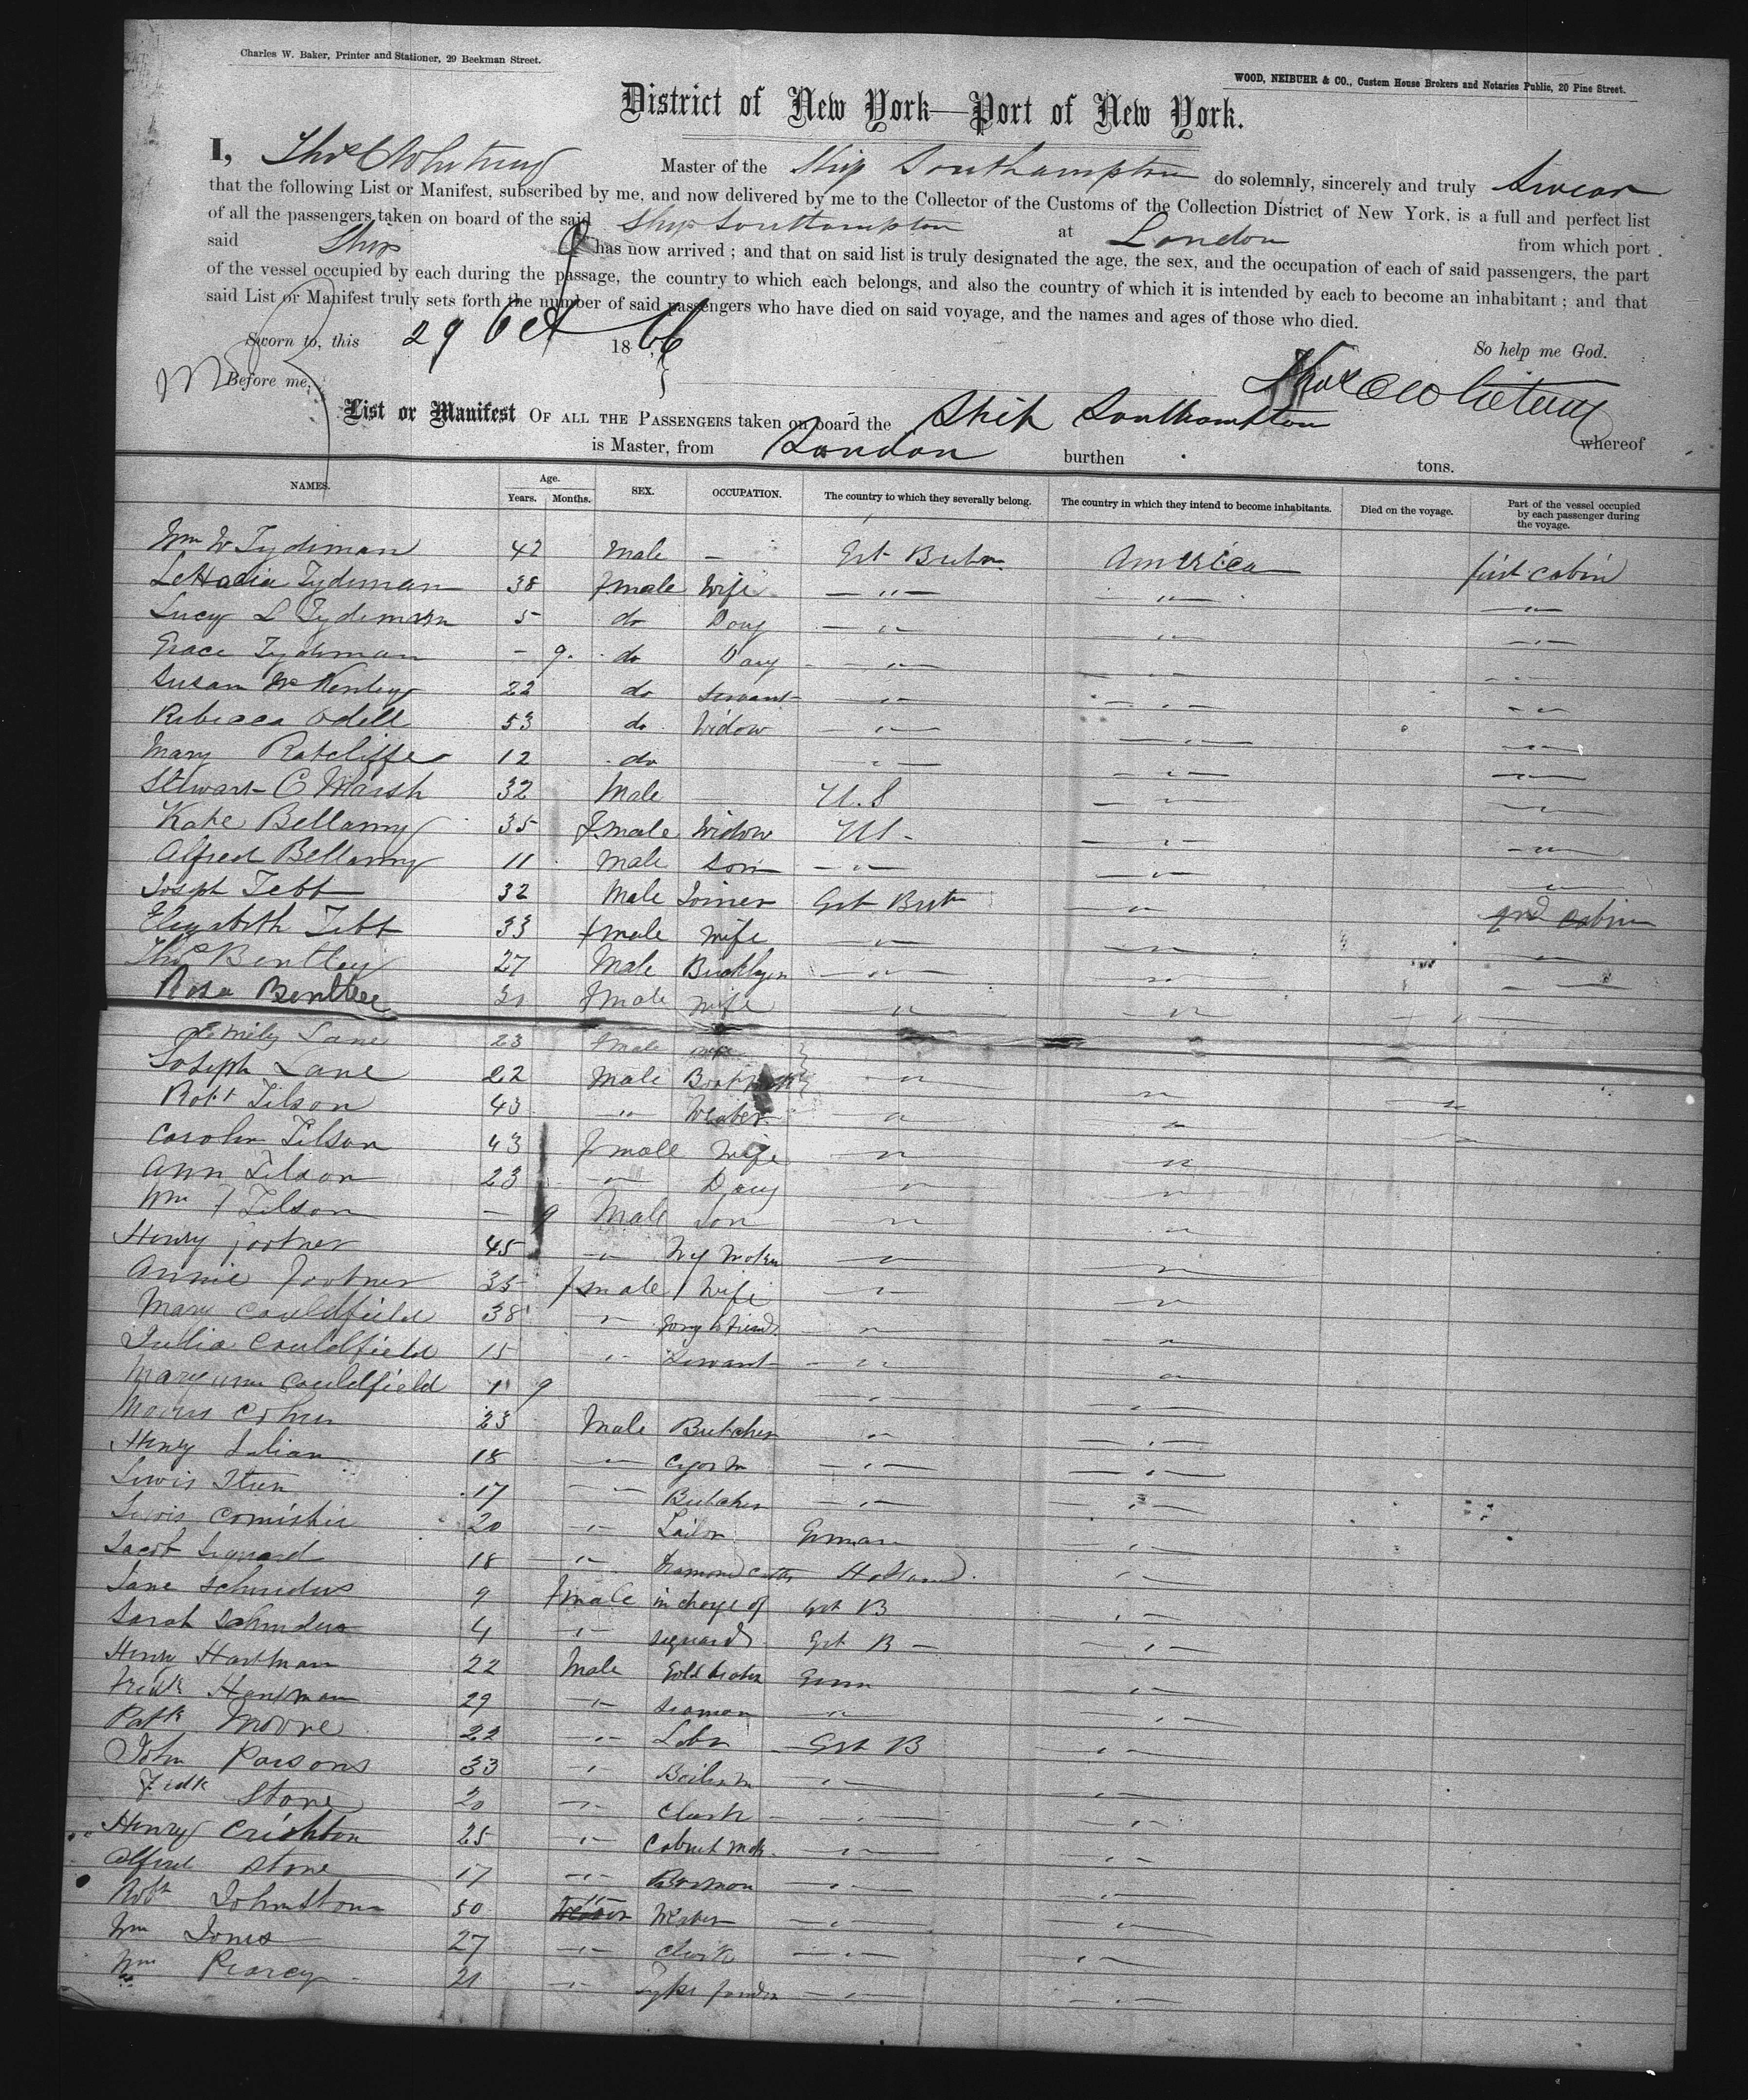 Charles W. Baker, Printer and Stationer, 29 Beekman Street.
WOOD, NEIBUHR & CO., Custom House Brokers and Notaries Public, 20 Pine Street.
District of New York—Port of New York.
I, Thos C Whiting Master of the Ship Southampton do solemnly, sincerely and truly Swear
that the following List or Manifest, subscribed by me, and now delivered by me to the Collector of the Customs of the Collection District of New York, is a full and perfect list
of all the passengers taken on board of the said Ship Southampton at London from which port
said Ship has now arrived ; and that on said list is truly designated the age, the sex, and the occupation of each of said passengers, the part
of the vessel occupied by each during the passage, the country to which each belongs, and also the country of which it is intended by each to become an inhabitant ; and that
said List or Manifest truly sets forth the number of said passengers who have died on said voyage, and the names and ages of those who died.
Sworn to, this 29 Oct 1866 So help me God.
Before me,
List or Manifest OF ALL THE PASSENGERS taken on board the Ship Southampton whereof
is Master, from London burthen tons.
NAMES. Age. Years. Months. SEX. OCCUPATION. The country to which they severally belong. The country in which they intend to become inhabitants. Died on the voyage. Part of the vessel occupied by each passenger during the voyage.
Wm W Tydeman 42 Male — Grt Britn America first cabin
Tydeman 38 female Wife — " — — " — — " —
Lucy L Tydeman 5 do Daug — " — — " — — " —
Grace Tydeman — 9 do Daug — " — — " — — " —
Susan 22 do Servant — " — — " — — " —
Rebecca Odell 53 do Widow — " — — " — — " —
Mary Ratcliffe 12 do — " — — " — — " —
Stewart C Marsh 32 Male — U.S — " — — " —
Kate Bellamy 35 female Widow US — " — — " —
Alfred Bellamy 11 Male Son — " — — " — — " —
Joseph Tebb 32 Male Joiner Grt Britn — " — 2nd cabin
Elizabeth Tebb 33 female Wife — " — — " — — " —
Thos Bentley 27 Male Bricklayer — " — — " — — " —
Rosa 30 female Wife — " — — " —
Emily Lane 23 female wife
Joseph Lane 22 Male — " — — " —
Robt Tilson 43 — " — Weaver — " — — " —
Carolin Tilson 43 female Wife — " — — " —
Ann Tilson 23 — " — Daug — " — — " —
Wm Tilson — 9 Male Son — " — — " —
Henry Footner 45 — " — — " — — " —
Annie Footner 35 female Wife — " — — " —
Mary Cauldfield 38 — " — — " — — " —
Julia Cauldfield 15 — " — Servant — " — — " —
Cauldfield 1 9 — " — — " —
23 Male Butcher — " — — " —
Henry 18 — " — — " — — " —
Lewis 17 — " — Butcher — " — — " —
Lewis 20 — " — Tailor German — " —
Jacob 18 — " — Diamond Cutter Holland — " —
Jane 9 female in charge of Grt B — " —
Sarah 4 — " — Grt B — — " —
Henry Hartman 22 Male Gold beater Germ — " —
29 — " — Seaman — " — — " —
Patk Moore 22 — " — Labr Grt B — " —
John Parsons 33 — " — Boiler m — " — — " —
Fredk Stone 20 — " — Clerk — " — — " —
Henry Crichton 25 — " — Cabinet mak — " — — " —
Alfred Stone 17 — " — — " — — " —
Robt Johnston 50 — " — Weaver — " — — " —
Wm Jones 27 — " — Clerk — " — — " —
Wm Pearcy 21 — " — Type founder — " — — " —